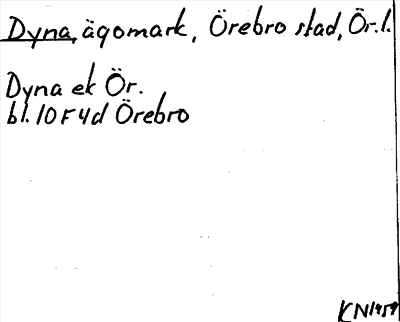 Dyna, ägomark, Örebro stad, Ör.l.
Dyna ek Ör.
bl. 10F4d Örebro
KN1959